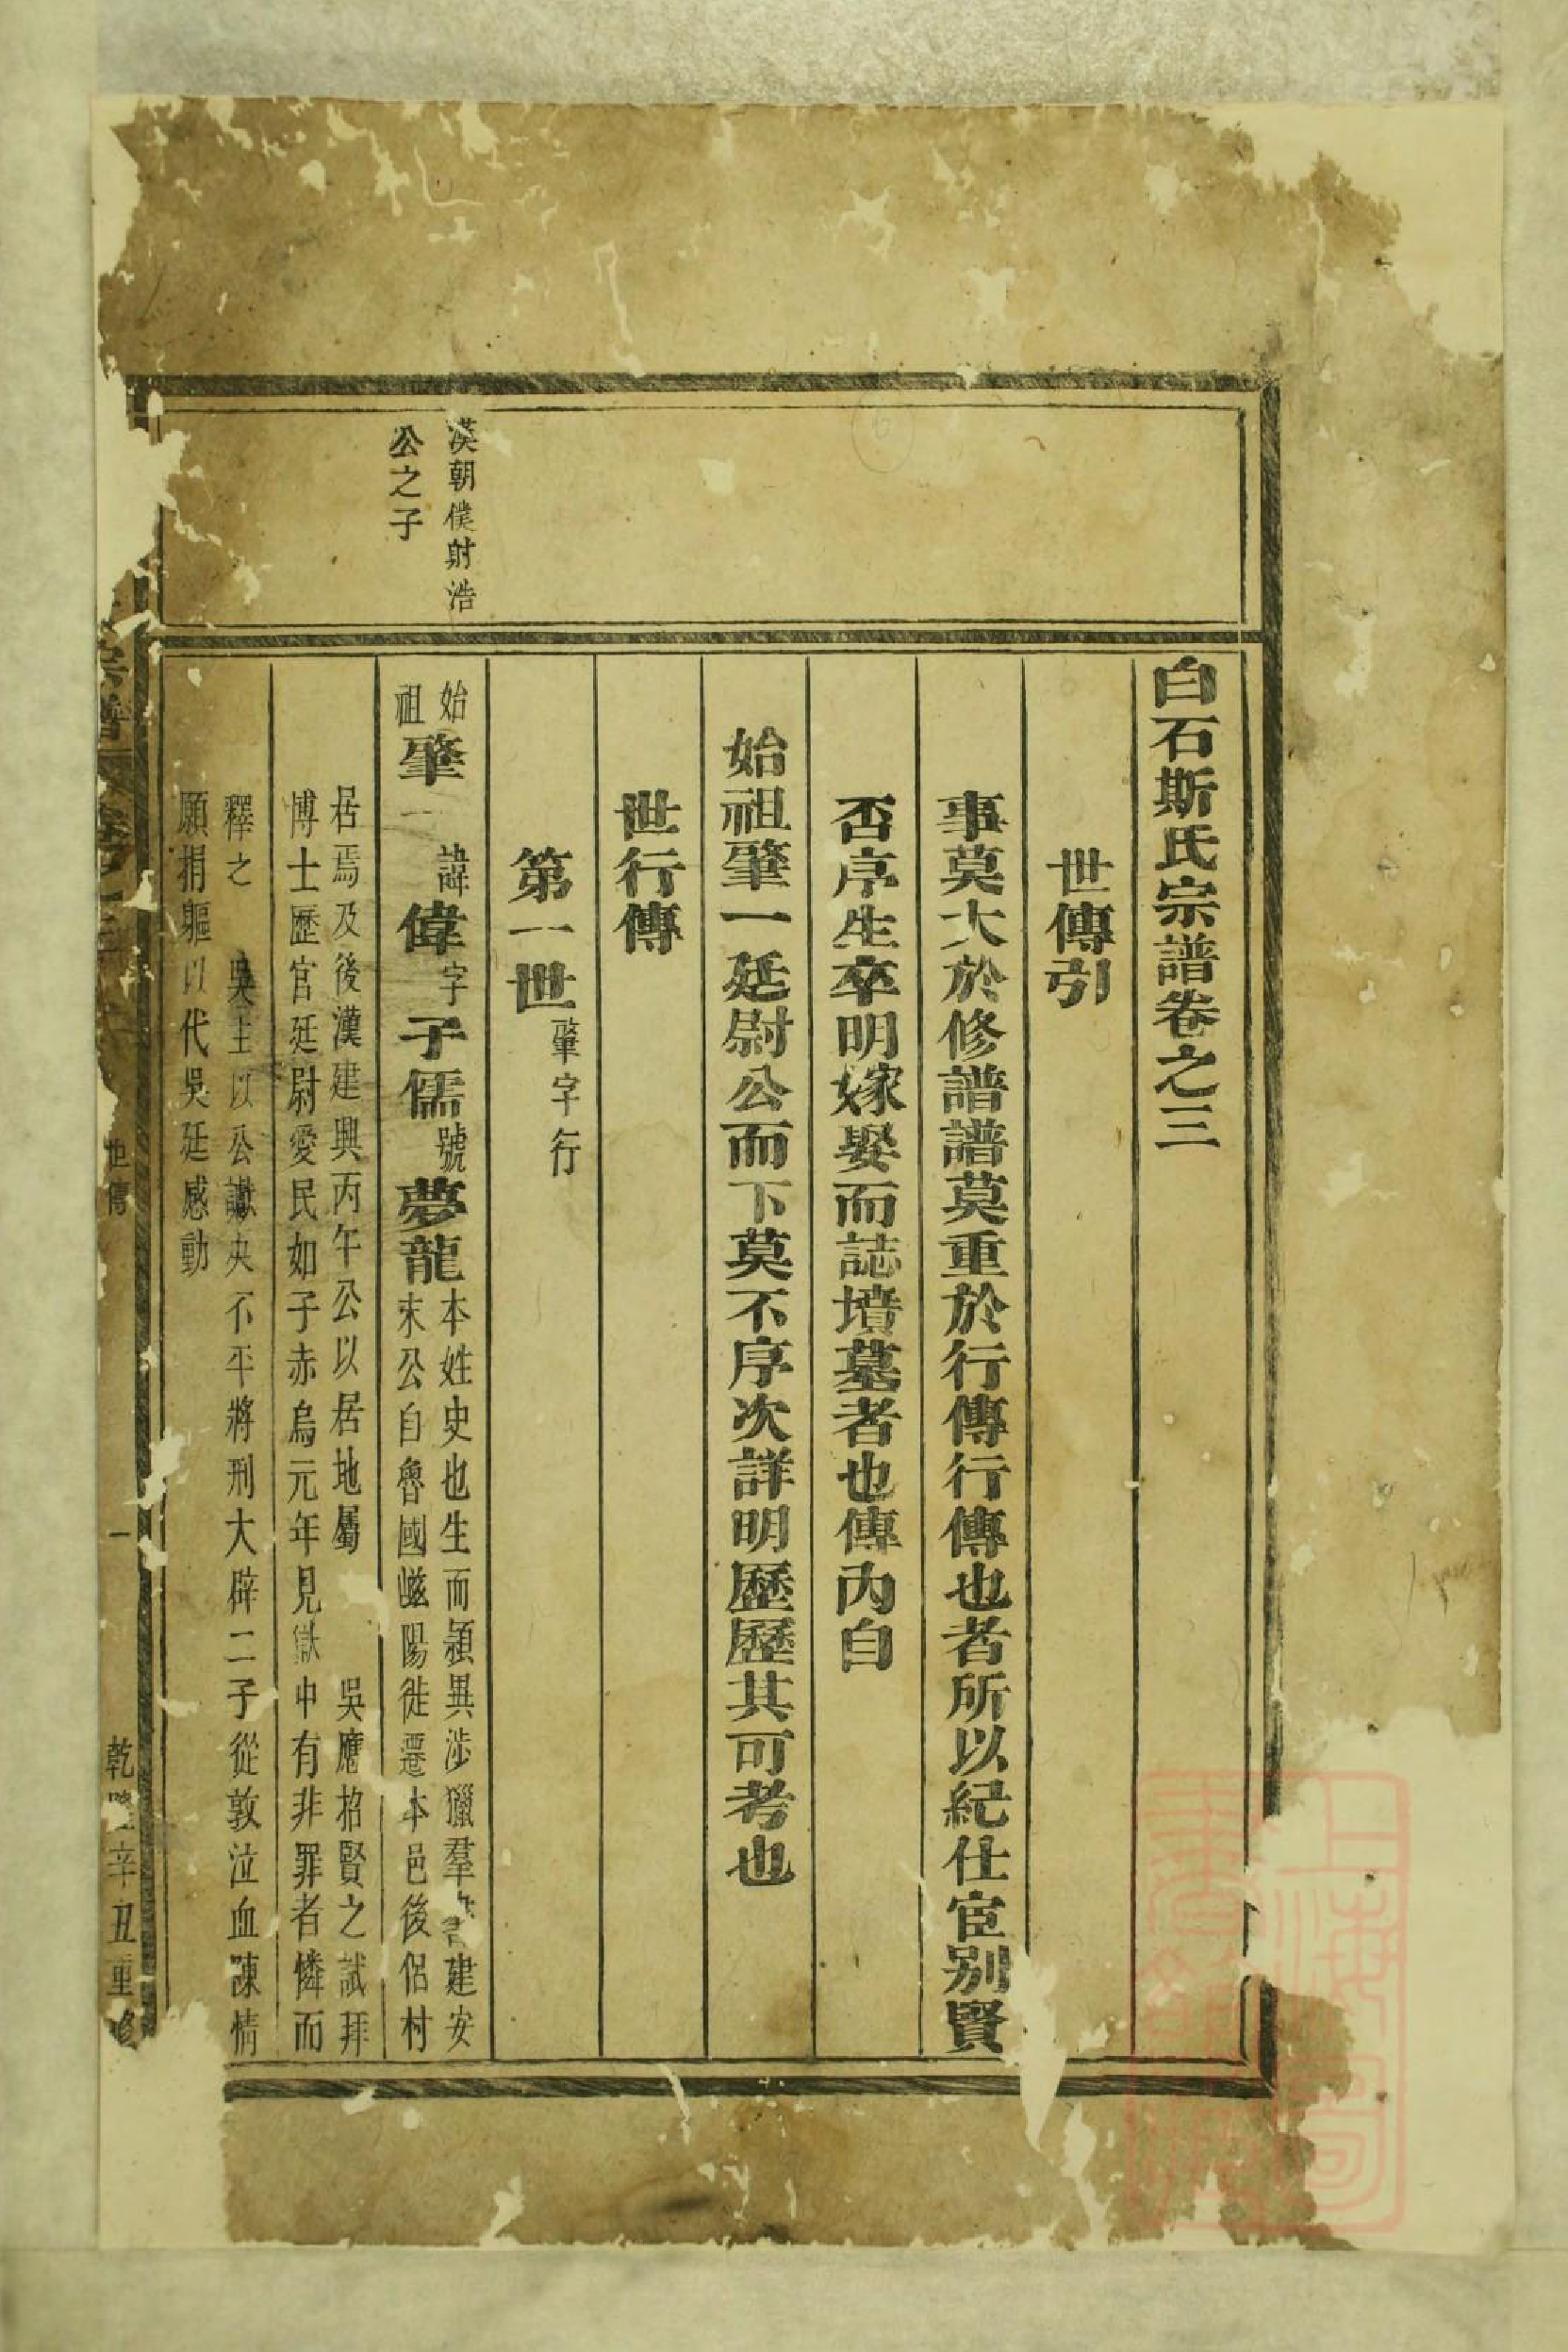 白石斯氏宗譜卷之三
世傳引
事莫大於修譜譜莫重於行傳行傳也者所以紀仕宦别賢
否序生卒明嫁娶而誌墳墓者也傳内自
始祖肇一廷尉公而下莫不序次詳明歷歷其可考也
世行傳
第一世肇字行
漢朝僕射浩
公之子
始祖肇一 諱偉字子儒號夢龍
本姓史也生而頴異涉獵羣書建安
末公自魯國嶫陽徙遷本邑後侣村
居焉及後漢建興丙午公以居地屬 吳應招賢之試拜
博士歷官廷尉愛民如子赤烏元年見獄中有非罪者憐而
釋之 吳主以公讞決不平將刑大辟二子從敦泣血陳情
願捐軀以代吳廷感動
宗譜
卷之三
世傳
一
乾隆辛丑重修
上海圖書館藏